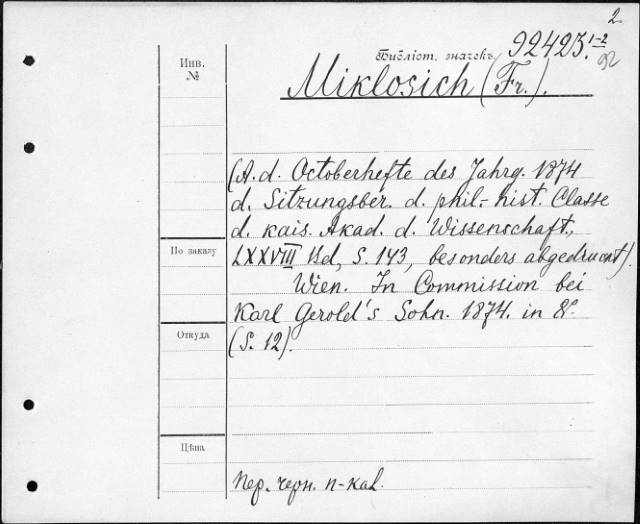 2
92423.1-2
92
Инв.
№
Библіот. значекъ
Miklosich (Fr.).
(A. d. Octoberhefte des Jahrg. 1874
d. Sitzungsber. d. phil.-hist. Classe
d. kais. Akad. d. Wissenschaft.,
По заказу
LXXVIII Bd, S. 143, besonders abgedruckt).
Wien. In Commission bei
Karl Gerold's Sohn. 1874. in 8º.
Откуда
(S. 12).
Цѣна
Пер. черн. п-кал.